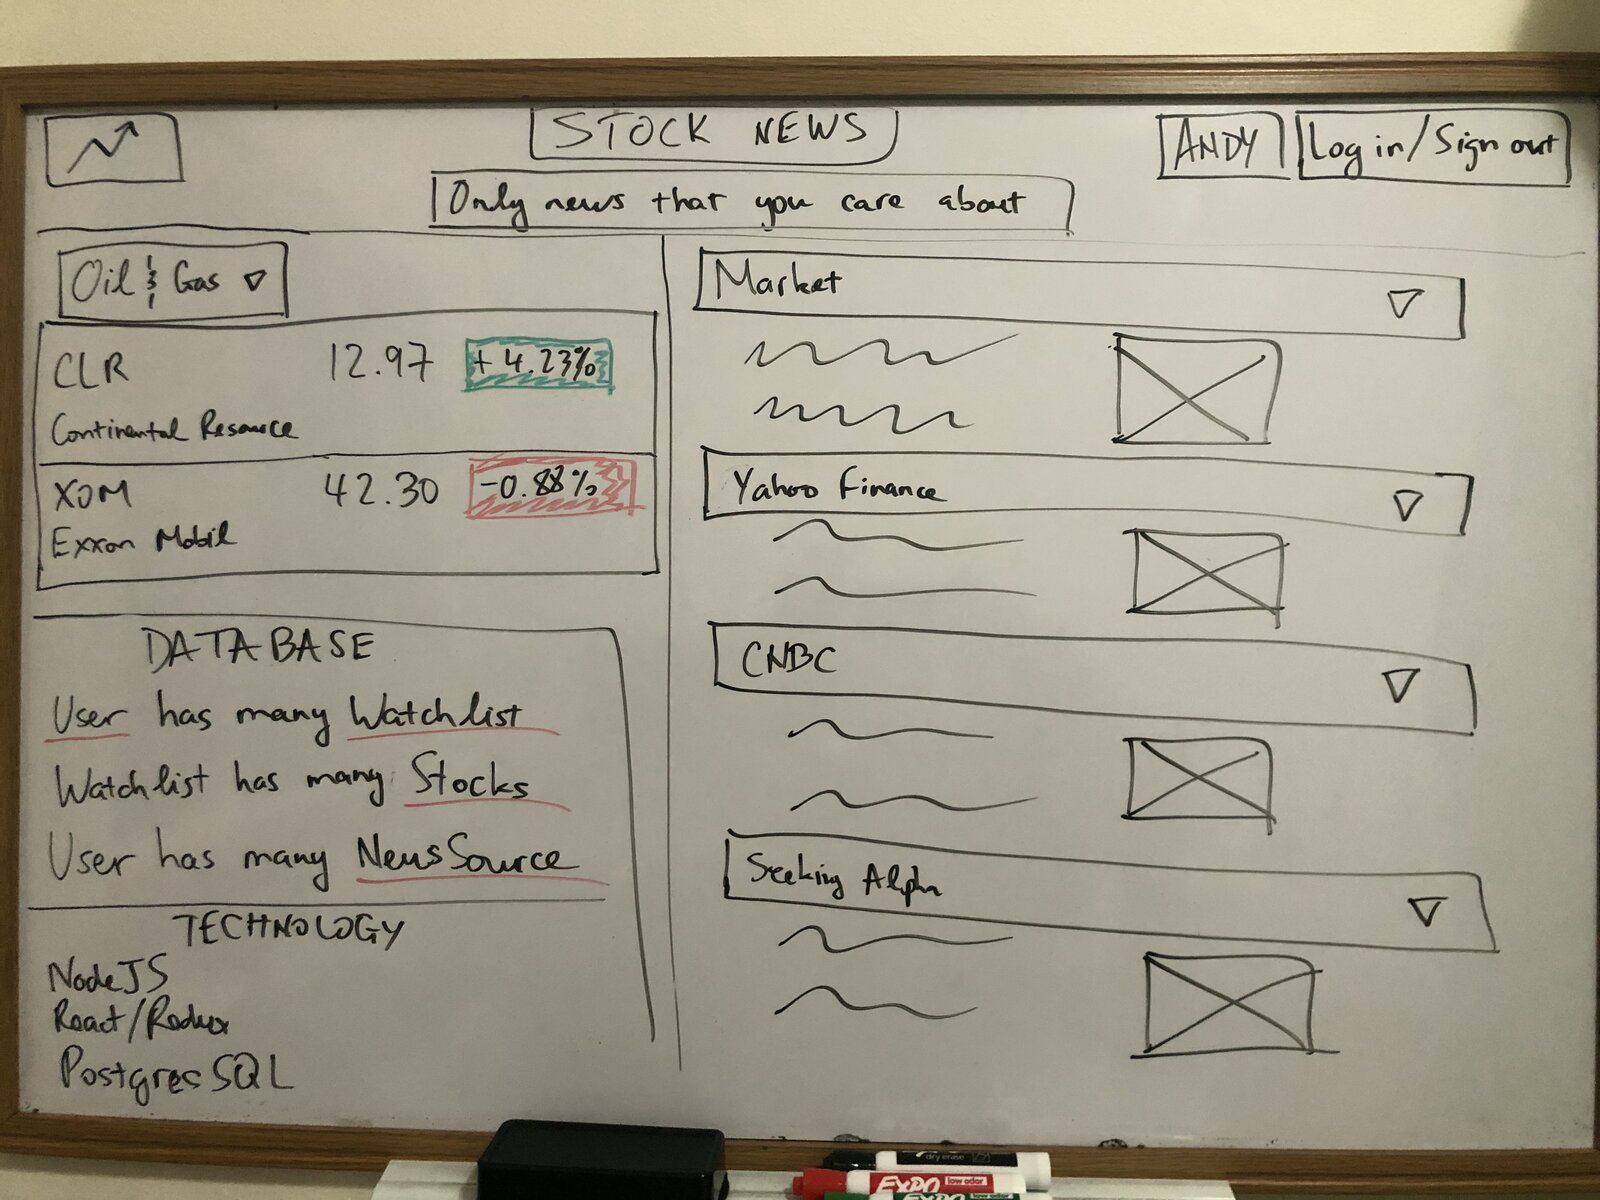 STOCK NEWS
ANDY
Log in/Sign out
Only news that you care about
Oil & Gas
CLR 12.97 +4.23%
Continental Resource
XOM 42.30 -0.88%
Exxon Mobil
DATABASE
User has many Watchlist
Watchlist has many Stocks
User has many NewsSource
TECHNOLOGY
NodeJS
React/Redux
PostgresSQL
Market
Yahoo Finance
CNBC
Seeking Alpha
dry erase
EXPO low odor
EXPO low odor